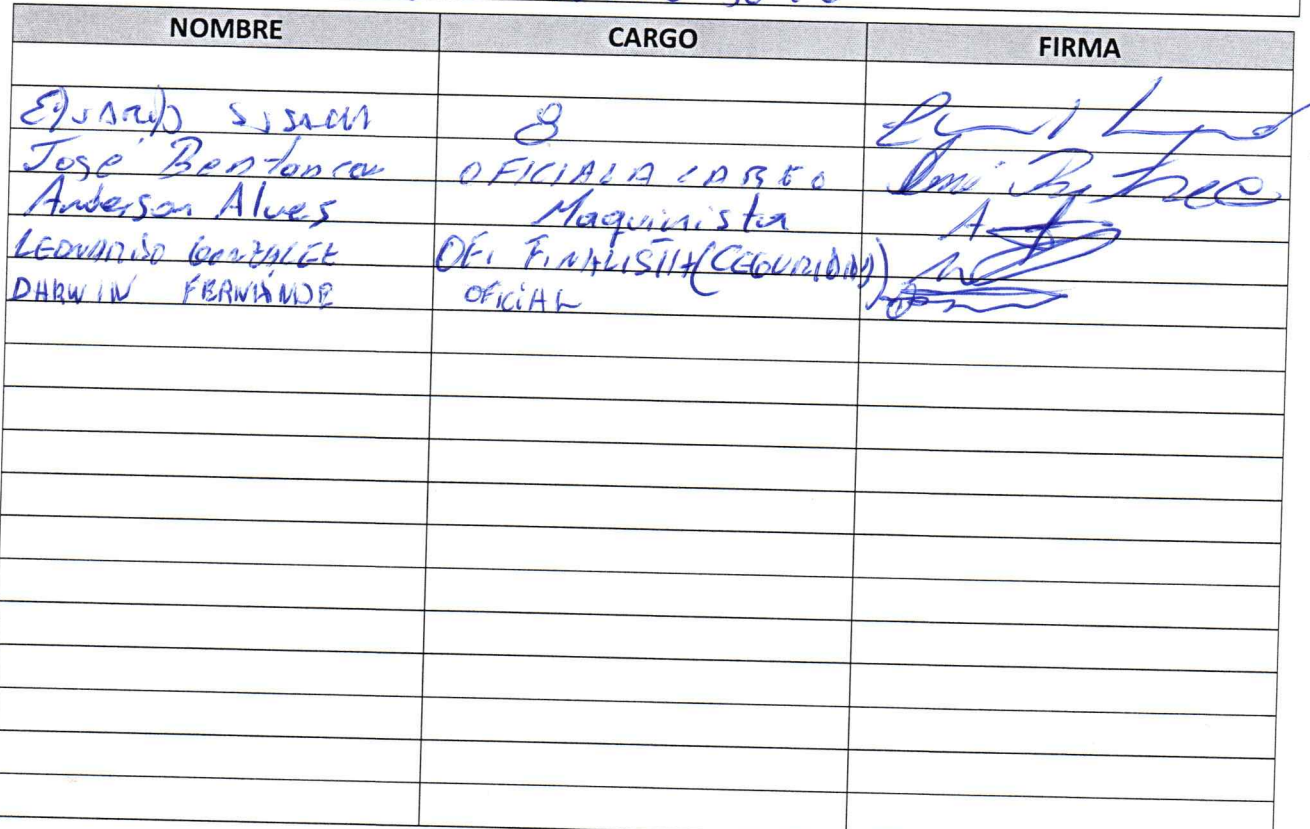 NOMBRE CARGO FIRMA
8
José Bentancor OFICIAL A CARGO
Anderson Alves Maquinista
LEONARDO GONZALEZ OFI. FINALISTA (CEGURIDAD)
DARWIN FERNÁNDE OFICIAL